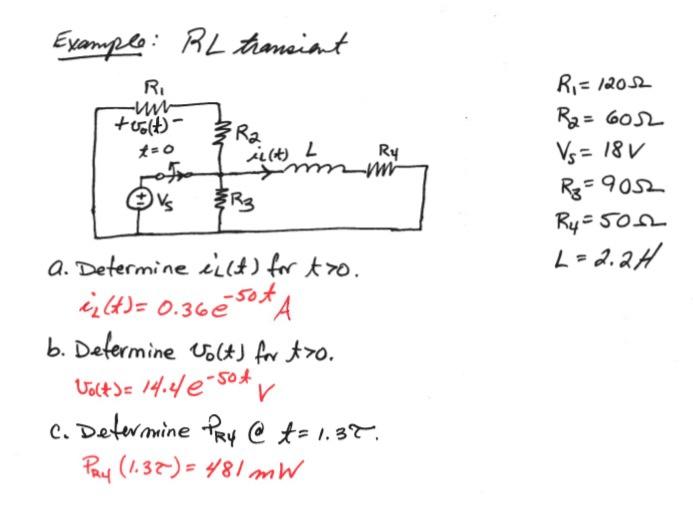 Example: RL transient
R₁
+ v₀(t) -
t=0
R₂
i_L(t) L R₄
+ - V_S
R₃
R₁ = 120Ω
R₂ = 60Ω
V_S = 18V
R₃ = 90Ω
R₄ = 50Ω
L = 2.2H
a. Determine i_L(t) for t>0.
i_L(t) = 0.36e^-50t A
b. Determine v₀(t) for t>0.
v₀(t) = 14.4e^-50t V
c. Determine P_R4 @ t = 1.3τ.
P_R4 (1.3τ) = 481 mW